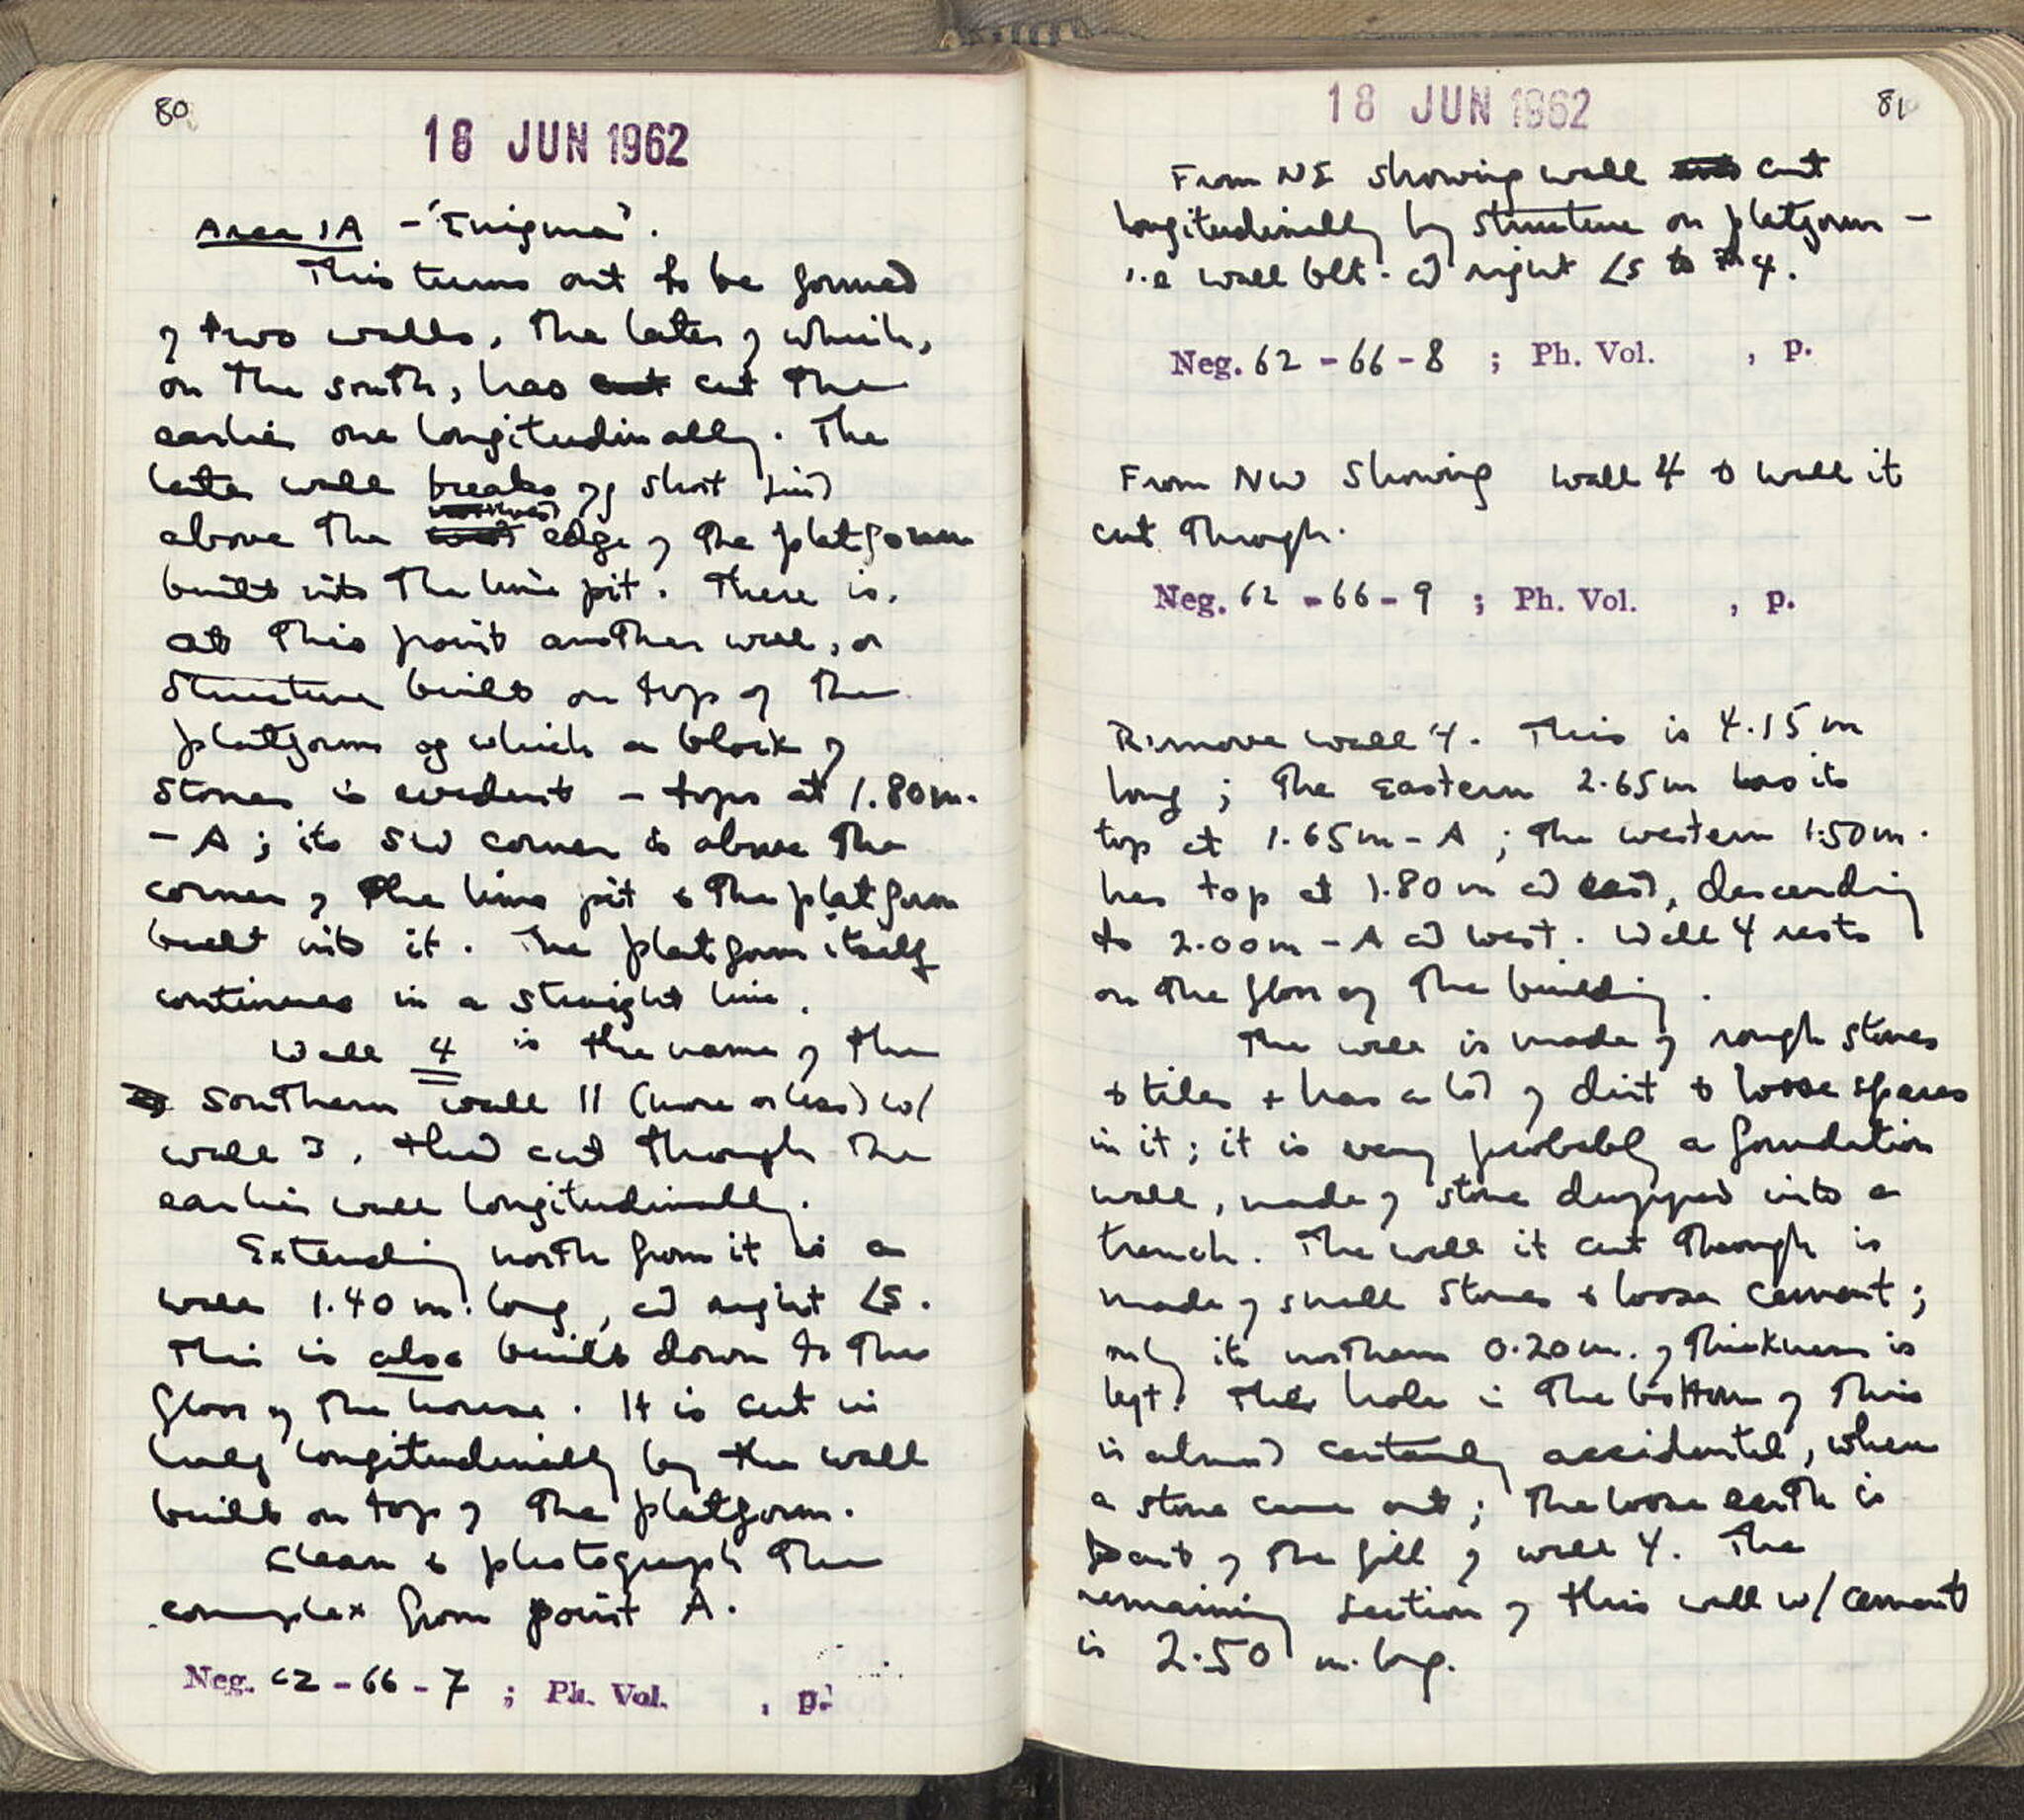 80
18 JUN 1962
Area 1A - "Enigma".
This turns out to be formed
of two walls, the later of which,
on the south, has cut cut the
earlier one longitudinally. The
later wall breaks off short just
above the northwest edge of the platform
built into the lime pit. There is,
at this point another wall, or
structure built on top of the
platform of which a block of
stones is evident - tops at 1.80m.
- A; its SW corner is above the
corner of the lime pit & the platform
built into it. The platform itself
continues in a straight line.
Wall 4 is the name of the
southern wall || (more or less) w/
wall 3, that cut through the
earlier wall longitudinally.
Extending north from it is a
wall 1.40 m. long, at right ∠s.
This is also built down to the
floor of the house. It is cut in
half longitudinally by the wall
built on top of the platform.
Clean & photograph the
complex from point A.
Neg. 62 - 66 - 7 ; Ph. Vol. , p.
81
18 JUN 1962
From NE showing wall cut
longitudinally by structure on platform -
i.e wall blt. at right ∠s to 4.
Neg. 62 - 66 - 8 ; Ph. Vol. , p.
From NW showing wall 4 & wall it
cut through.
Neg. 62 - 66 - 9 ; Ph. Vol. , p.
Remove wall 4. This is 4.15 m
long; the eastern 2.65m has its
top at 1.65m - A; the western 1.50m.
has top at 1.80 m at east, descending
to 2.00m - A at west. Wall 4 rests
on the floor of the building.
The wall is made of rough stones
& tiles & has a lot of dirt & loose spaces
in it; it is very probably a foundation
wall, made of stone dropped into a
trench. The wall it cut through is
made of small stones & loose cement;
only its northern 0.20m. of thickness is
left. The hole in the bottom of this
is almost certainly accidental, when
a stone came out; the loose earth is
part of the fill of wall 4. The
remaining section of this wall w/ cement
is 2.50 m. long.